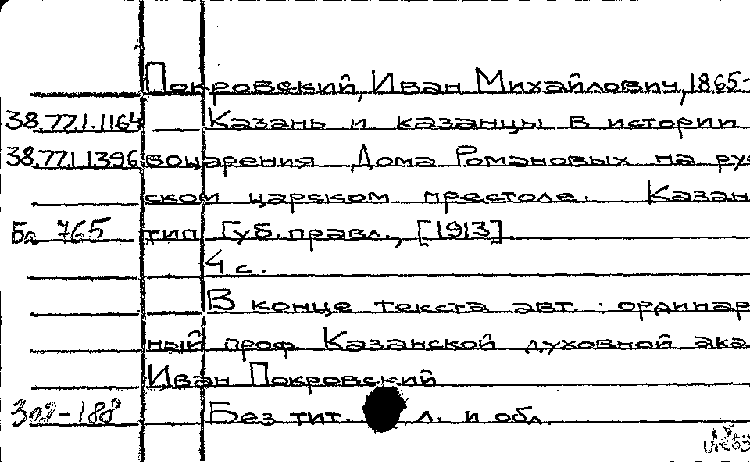 Покровский, Иван Михайлович, 1865-
38.771.1164 Казань и казанцы в истории
38.771.1396 воцарения Дома Романовых на рус
ском царском престоле. Казан
Ба 765 тип. Губ. правл., [1913]
4 с.
В конце текста авт.: ординар
ный проф. Казанской духовной ака
Иван Покровский
Без тит. л. и обл.